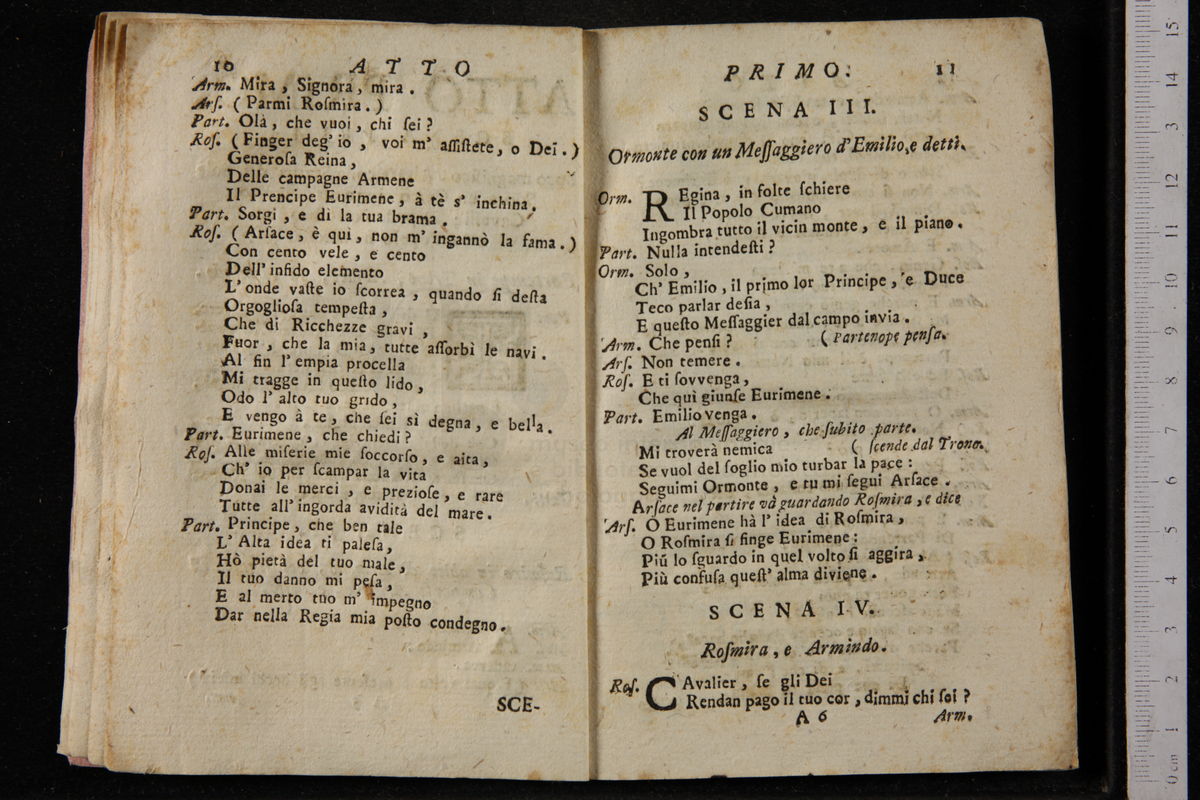 10 ATTO
Arm. Mira, Signora, mira.
Arſ. (Parmi Roſmira.)
Part. Olà, che vuoi, chi ſei?
Roſ. (Finger deg' io, voi m' aſſiſtete, o Dei.)
Generoſa Reina,
Delle campagne Armene
Il Prencipe Eurimene, à tè s' inchina.
Part. Sorgi, e di la tua brama.
Roſ. (Arſace, è qui, non m' ingannò la fama.)
Con cento vele, e cento
Dell' infido elemento
L' onde vaſte io ſcorrea, quando ſi deſta
Orgoglioſa tempeſta,
Che di Ricchezze gravi,
Fuor, che la mia, tutte aſſorbì le navi.
Al fin l' empia procella
Mi tragge in queſto lido,
Odo l' alto tuo grido,
E vengo à te, che ſei sì degna, e bella.
Part. Eurimene, che chiedi?
Roſ. Alle miſerie mie ſoccorſo, e aita,
Ch' io per ſcampar la vita
Donai le merci, e prezioſe, e rare
Tutte all' ingorda avidità del mare.
Part. Principe, che ben tale
L' Alta idea ti paleſa,
Hò pietà del tuo male,
Il tuo danno mi peſa,
E al merto tuo m' impegno
Dar nella Regia mia poſto condegno.
SCE-
PRIMO. 11
SCENA III.
Ormonte con un Meſſaggiero d'Emilio, e detti.
Orm. REgina, in folte ſchiere
Il Popolo Cumano
Ingombra tutto il vicin monte, e il piano.
Part. Nulla intendeſti?
Orm. Solo,
Ch' Emilio, il primo lor Principe, e Duce
Teco parlar deſia,
E queſto Meſſaggier dal campo invia.
Arm. Che penſi? (Partenope penſa.
Arſ. Non temere.
Roſ. E ti ſovvenga,
Che quì giunſe Eurimene.
Part. Emilio venga.
Al Meſſaggiero, che ſubito parte.
Mi troverà nemica (ſcende dal Trono.
Se vuol del ſoglio mio turbar la pace:
Seguimi Ormonte, e tu mi ſegui Arſace.
Arſace nel partire và guardando Roſmira, e dice
Arſ. O Eurimene hà l' idea di Roſmira,
O Roſmira ſi finge Eurimene:
Piú lo ſguardo in quel volto ſi aggira,
Più confuſa queſt' alma diviene.
SCENA IV.
Roſmira, e Armindo.
Roſ. CAvalier, ſe gli Dei
Rendan pago il tuo cor, dimmi chi ſei?
A 6 Arm.
15
14
13
12
11
10
9
8
7
6
5
4
3
2
1
0 cm